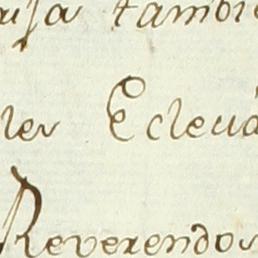 tambie
ler Ecleua
Reverendos